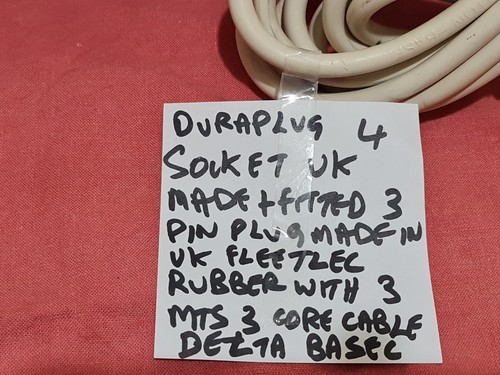 DURAPLUG 4
SOCKET UK
MADE + FITTED 3
PIN PLUG MADE IN
UK FLEETLEC
RUBBER WITH 3
MTS 3 CORE CABLE
DELTA BASEC